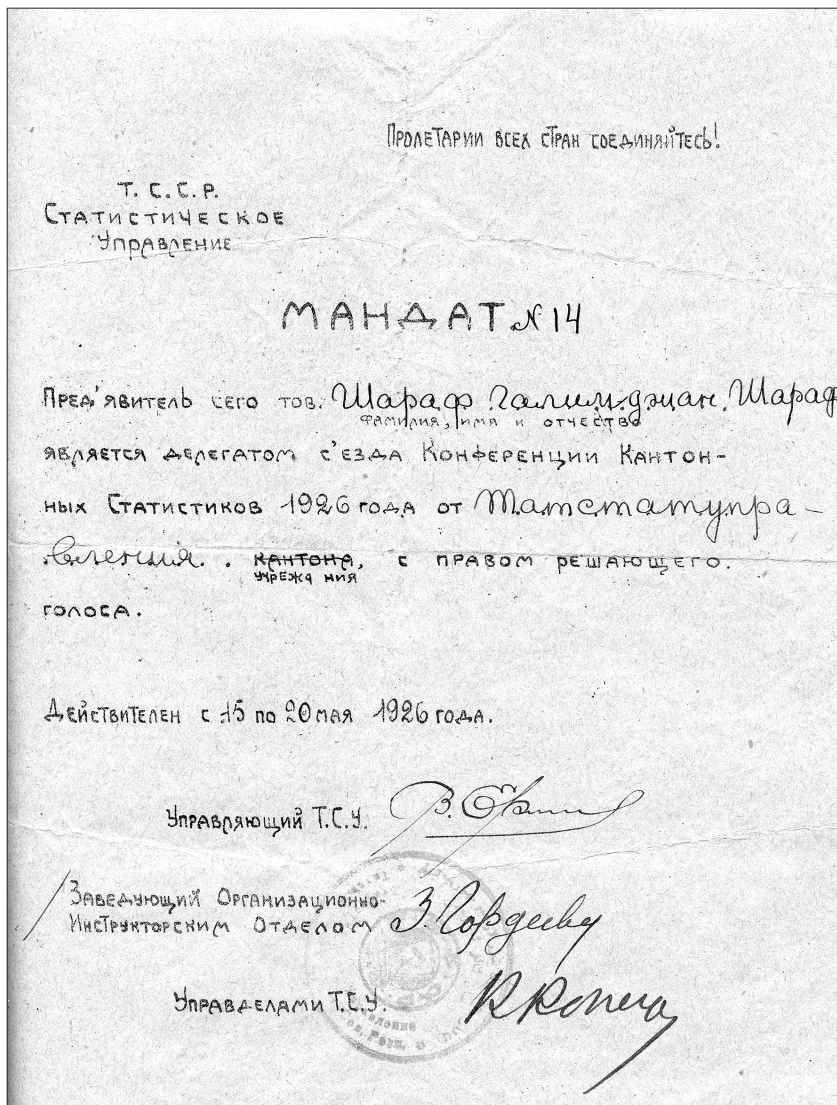 Пролетарии всех стран соединяйтесь!
Т. С. С. Р.
Статистическое
Управление
МАНДАТ № 14
Пред'явитель сего тов. Шараф Галимджан Шараф
фамилия, имя и отчество
является делегатом с'езда Конференции Кантон-
ных Статистиков 1926 года от Татстатупра-
вления. кантона, с правом решающего.
учрежд ния
голоса.
Действителен с 15 по 20 мая 1926 года.
Управляющий Т.С.У.
Заведующий Организационно-
Инструкторским Отделом З. Гордеев
Управделами Т.С.У.